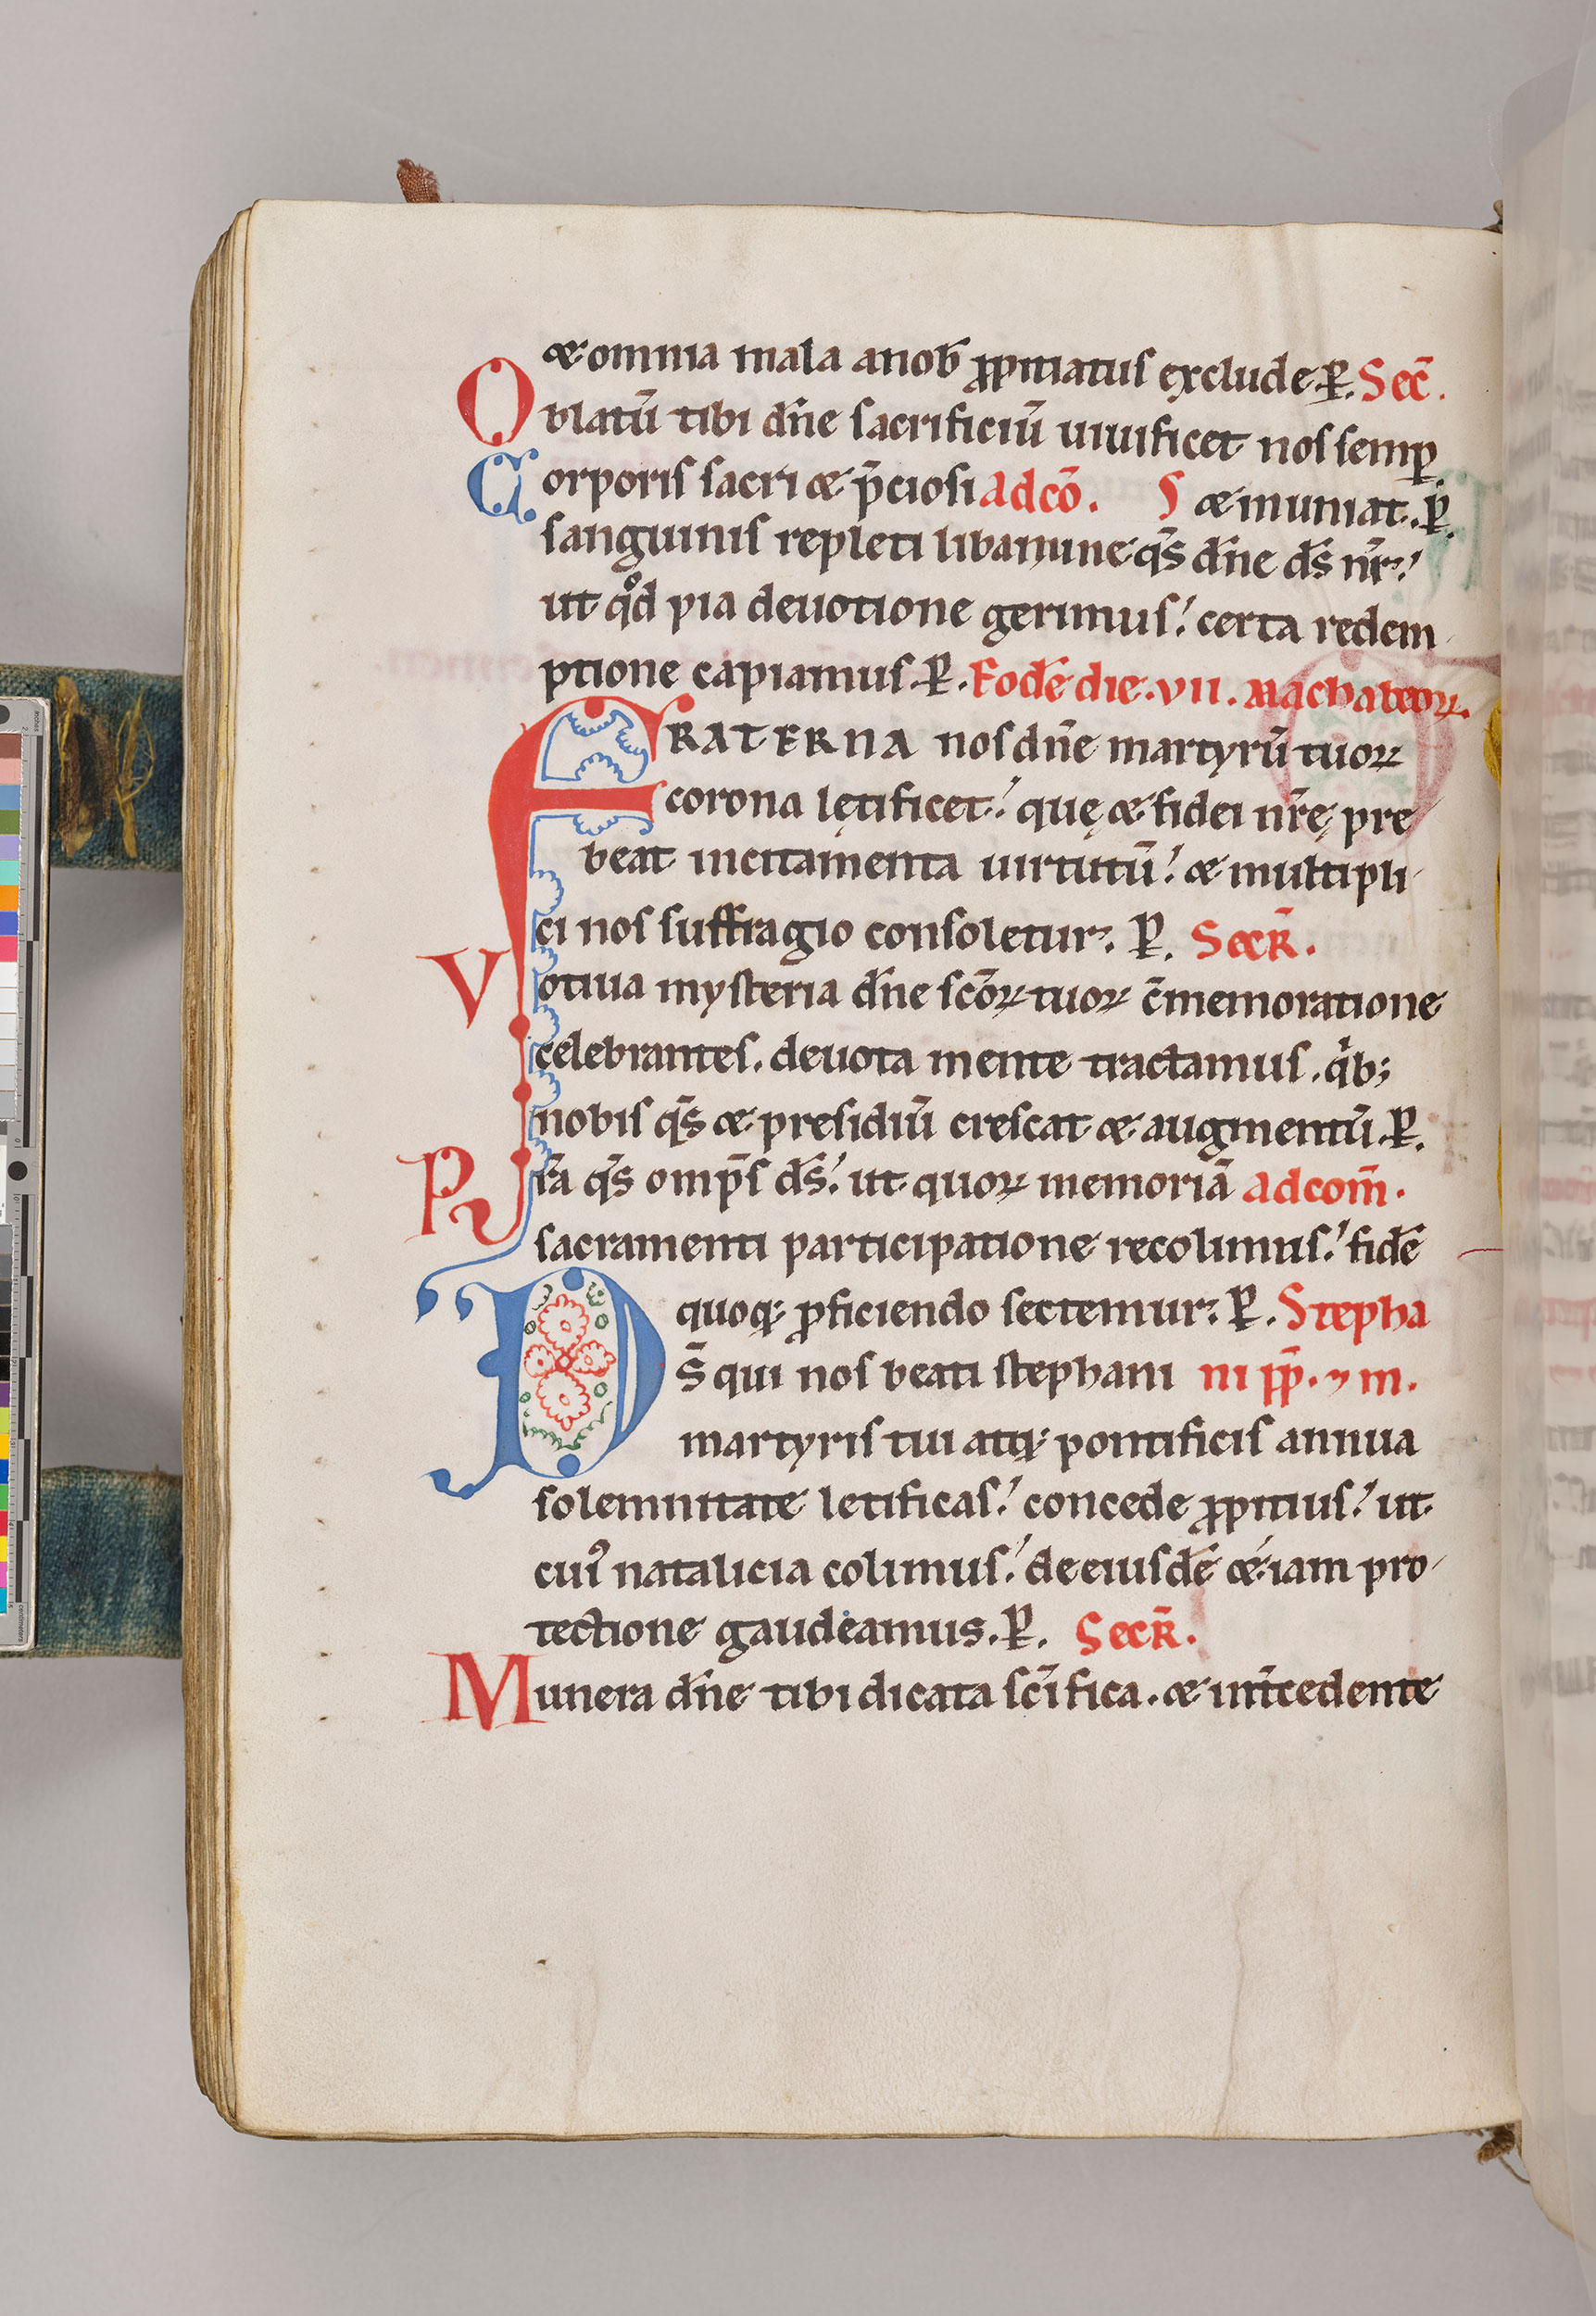 & omnia mala a nob̄ ꝓpitiatus exclude. P̲. Sec̄.
Oblatū tibi dn̄e sacrificiū uiuificet nos semꝑ
Corporis sacri & p̄ciosi Ad cō. S & muniat. p̲.
sanguinis repleti libamine qs̄ dn̄e ds̄ nr̄.
ut qͦd pia deuotione gerimus. certa redem
ptione capiamus. P̲. Eodē die. VII. Machabeoꝝ.
FRATERNA nos dn̄e martyrū tuoꝝ
corona lętificet. quę & fidei nr̄ę pre
beat incitamenta uirtutū. & multipli
ci nos suffragio consoletur. P̲. SecR̄.
Votiua mysteria dn̄e scōꝝ tuoꝝ c̄memoratione
celebrantes. deuota mente tractamus. qͥb;
nobis qs̄ & presidiū crescat & augmentū. P̲.
Pr̄a qs̄ omp̄s ds̄. ut quoꝝ memoriā Ad com̄.
sacramenti participatione recolimus. fidē
quoq; ꝓficiendo sectemur. P̲. Stepha
Ds̄ qui nos beati stephani ni pp̄. ⁊ m.
martyris tui atq; pontificis annua
solemnitate letificas. concede ꝓpitius. ut
cuiꝰ natalicia colimus. de eiusdē &iam pro
tectione gaudeamus. P̲. SecR̄.
Munera dn̄e tibi dicata sc̄ifica. & int̄cedente